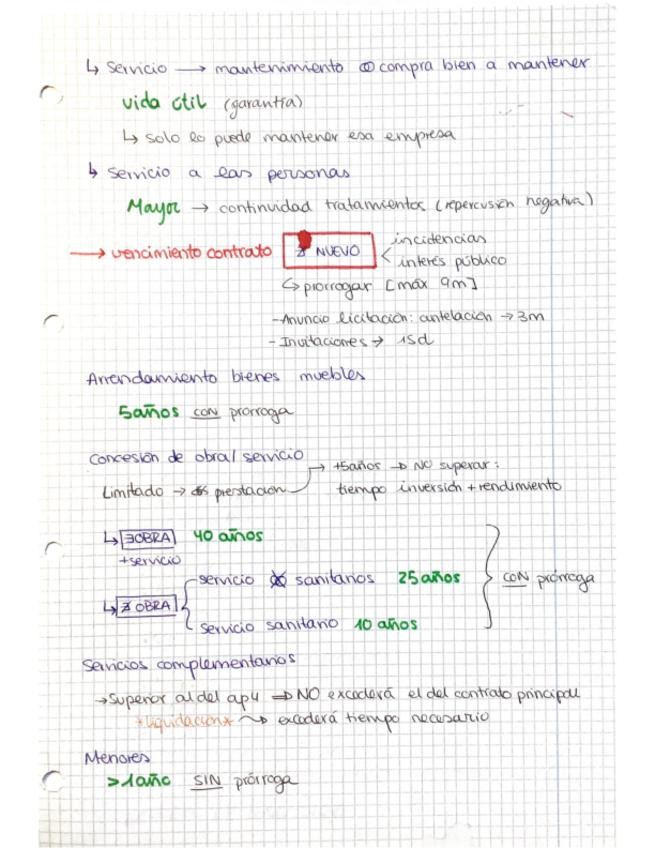 ↳ Servicio → mantenimiento compra bien a mantener
vida útil (garantía)
↳ solo lo puede mantener esa empresa
↳ Servicio a las personas
Mayor → continuidad tratamientos (repercusión negativa)
→ vencimiento contrato ∄ NUEVO
incidencias
interés público
↳ prorrogar [máx 9m]
- Anuncio licitación: antelación → 3m
- Invitaciones → 15d
Arrendamiento bienes muebles
5años CON prórroga
Concesión de obra/servicio
Limitado → prestación
→ +5años → NO superar:
tiempo inversión + rendimiento
↳ ∃OBRA 40 años
+servicio
↳ ∄ OBRA
servicio sanitarios 25 años
servicio sanitario 10 años
CON prórroga
Servicios complementarios
→ Superior al del ap4 ⇒ NO excederá el del contrato principal
*liquidación* ⤳ excederá tiempo necesario
Menores
>1año SIN prórroga